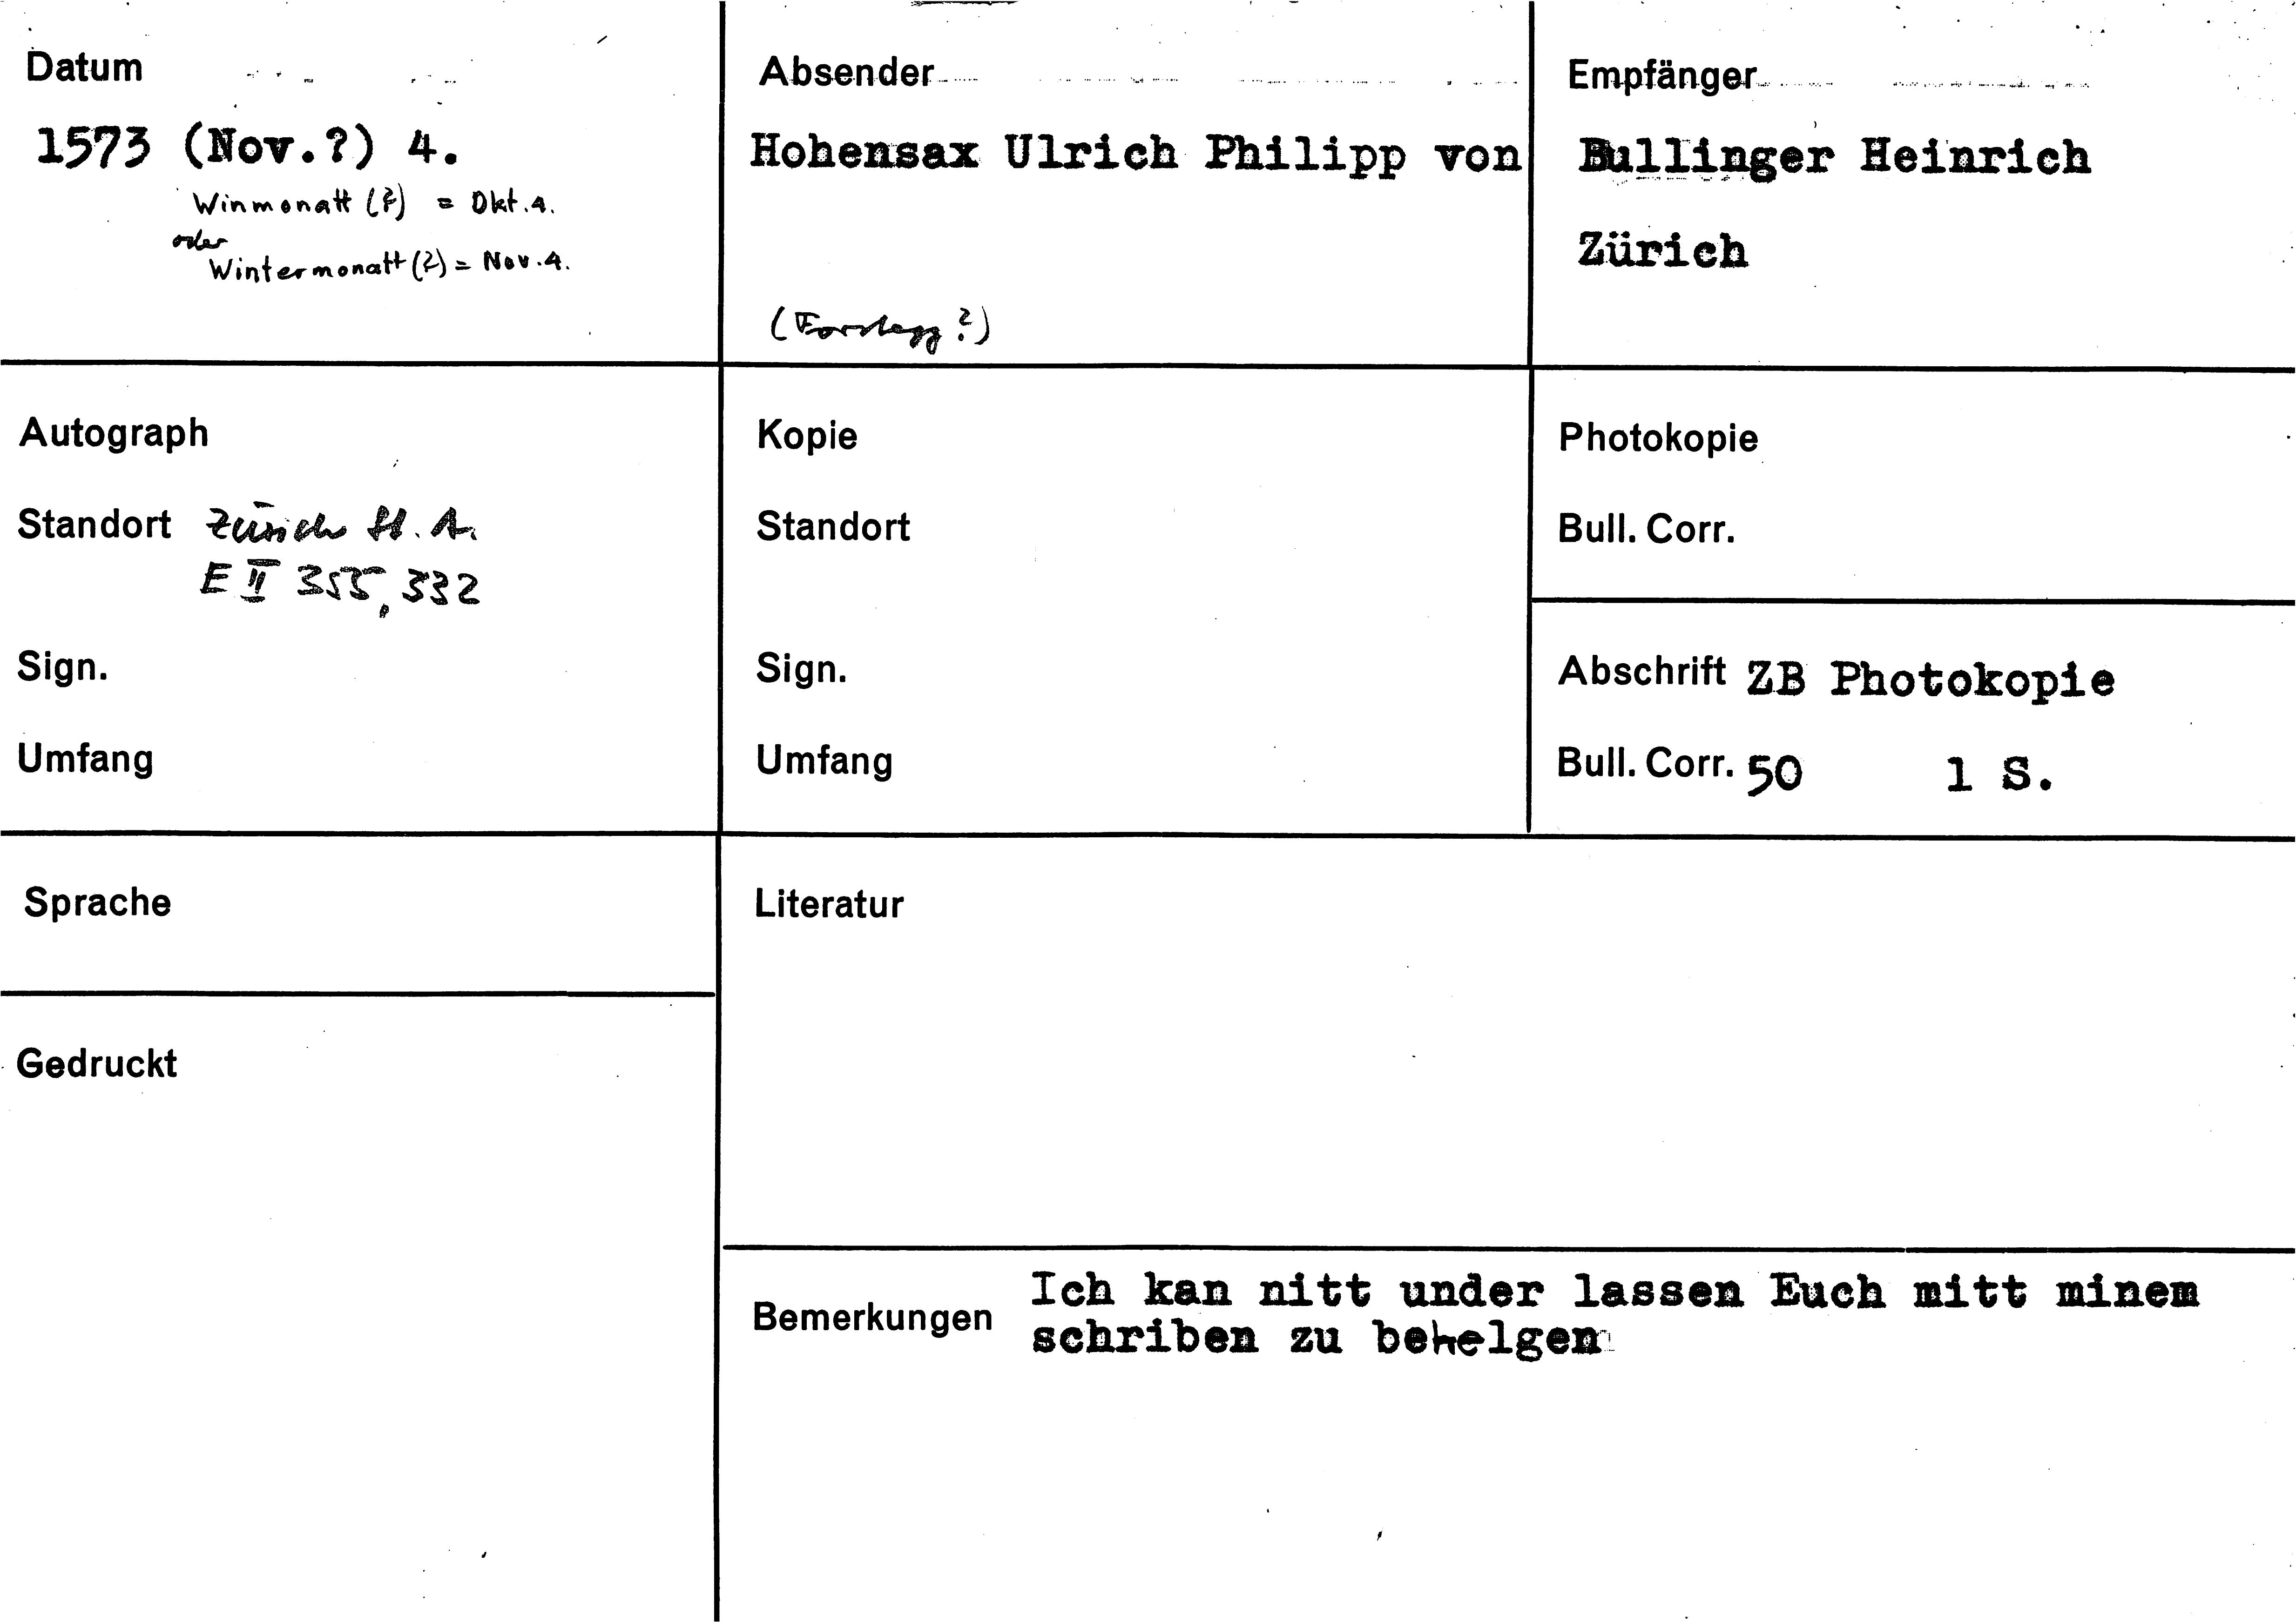 Datum
1573 (Nov.?) 4.
Winmonatt (?) = Okt. 4.
oder
Wintermonatt (?) = Nov. 4.
Absender
Hohensax Ulrich Philipp von
(Forstegg?)
Empfänger
Bullinger Heinrich
Zürich
Autograph
Standort Zürich St. A.
E II 355, 332
Sign.
Umfang
Kopie
Standort
Sign.
Umfang
Photokopie
Bull. Corr.
Abschrift ZB Photokopie
Bull. Corr. 50 1 S.
Sprache
Gedruckt
Literatur
Bemerkungen Ich kan nitt under lassen Euch mitt minem
schriben zu behelgen